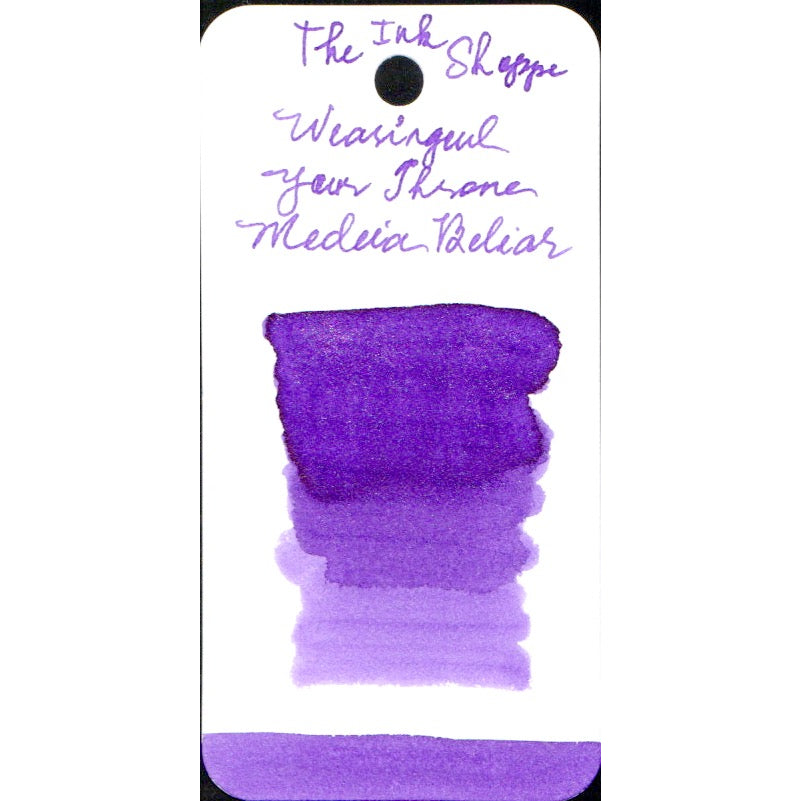 The Ink Shoppe
Wearingeul
Your Throne
Medeia Beliar